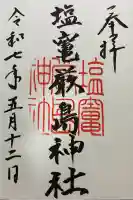 奉拝
塩竈厳島神社
塩竈
神社
令和七年五月十二日